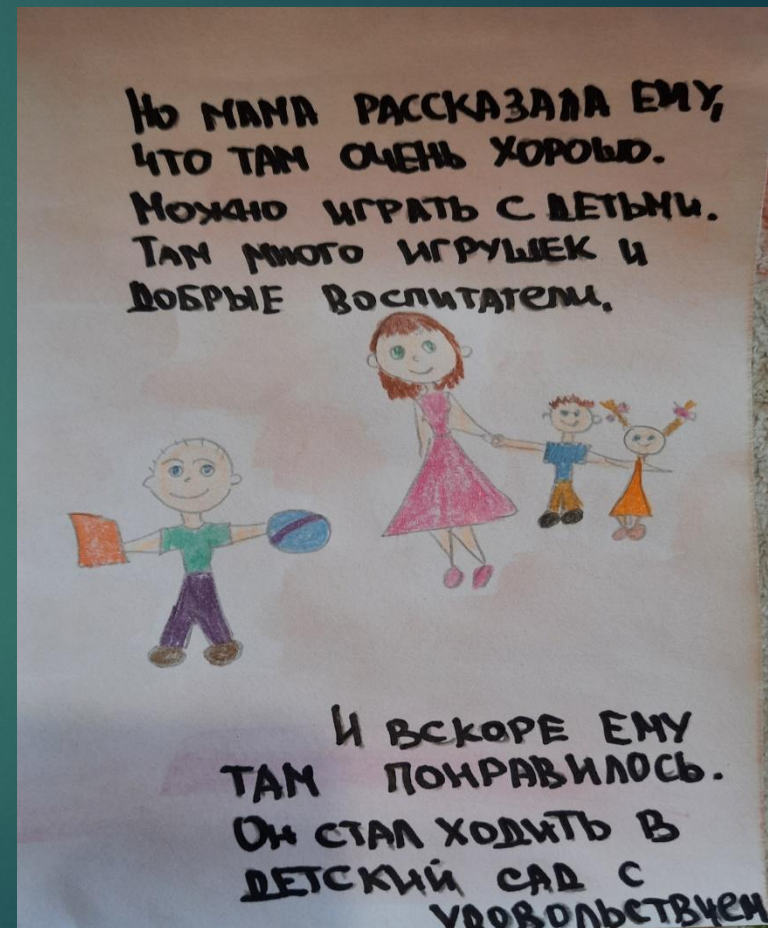 Но мама рассказала ему,
что там очень хорошо.
Можно играть с детьми.
Там много игрушек и
добрые воспитатели.
И вскоре ему
там понравилось.
Он стал ходить в
детский сад с
удовольствием